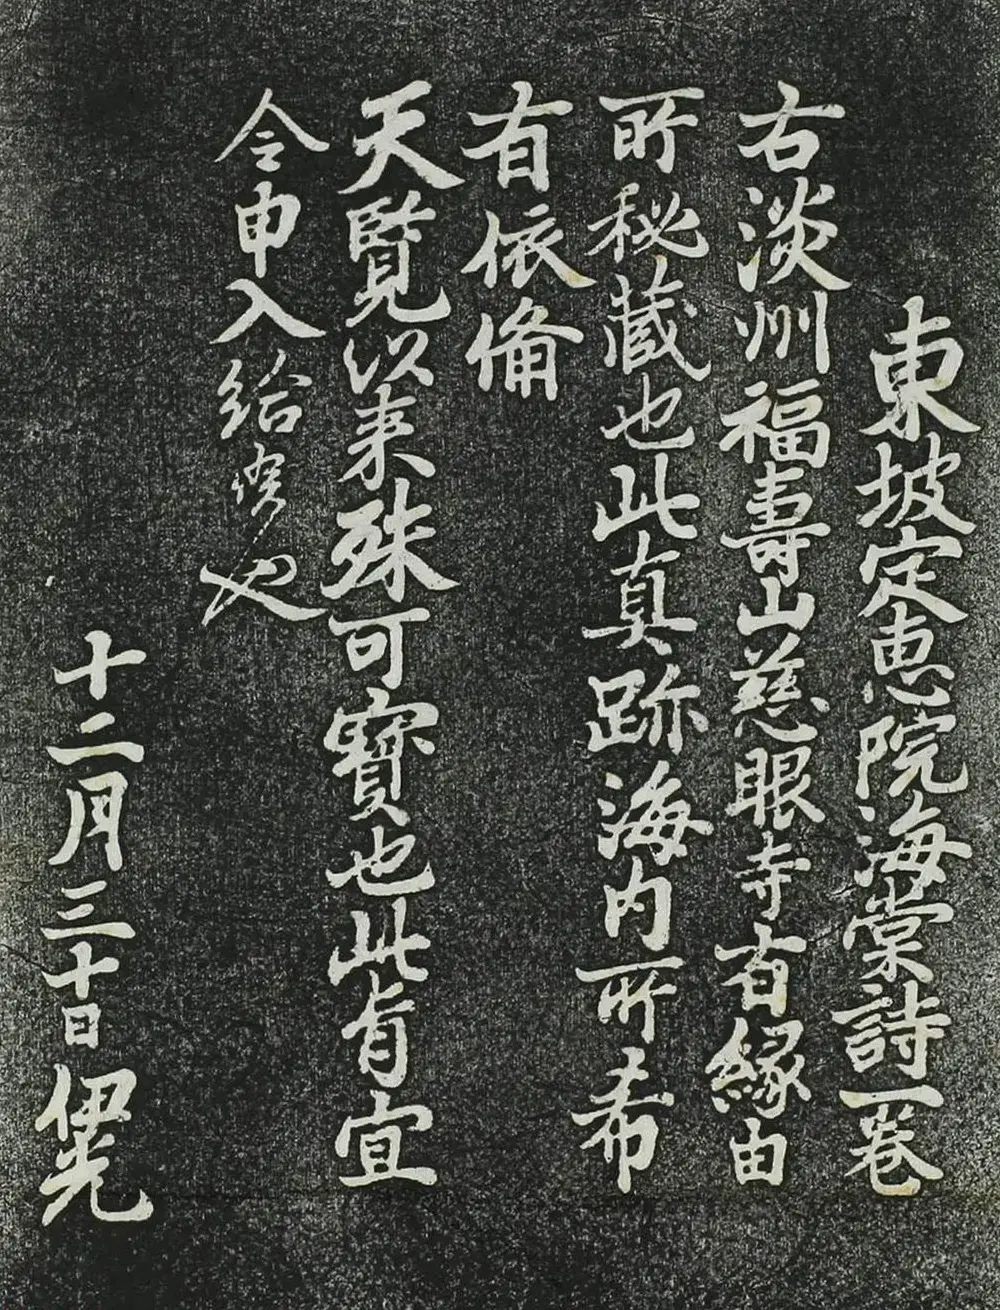 東坡定恵院海棠詩一巻
右淡州福壽山慈眼寺有縁由
所秘蔵也此真跡海内所希
有依備
天覧以来殊可寳也此旨宜
令申入給候也
十二月三十日伊光